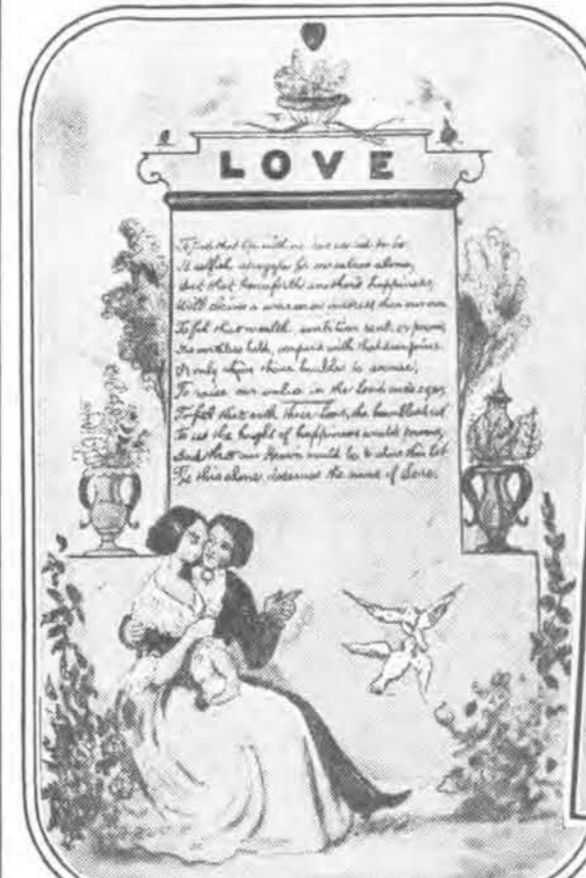 LOVE
To feel that we
A selfish struggle for ourselves alone,
But that henceforth another's happiness,
Will claim a warmer interest than our own
To feel that wealth, ambition, rank, or power,
Are worthless held, compared with that
Or only when those
To raise our value in the lov'd one's eyes,
To feel that with those lov'd, the humblest cot
To us the height of happiness would prove,
And that our Heaven would be to share this lot
Tis this alone, deserves the name of Love.